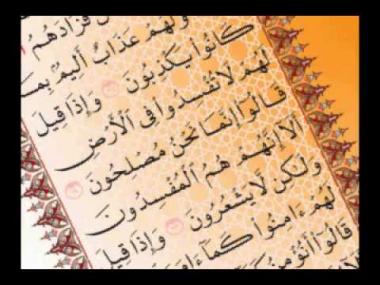 ن فزادهم
ولهم عذاب أليم بما
كانوا يكذبون وإذا قيل
لهم لا تفسدوا في الأرض
قالوا إنما نحن مصلحون
ألا إنهم هم المفسدون
ولكن لا يشعرون وإذا قيل
لهم ءامنوا كما ءا
قالوا أنؤمن ك